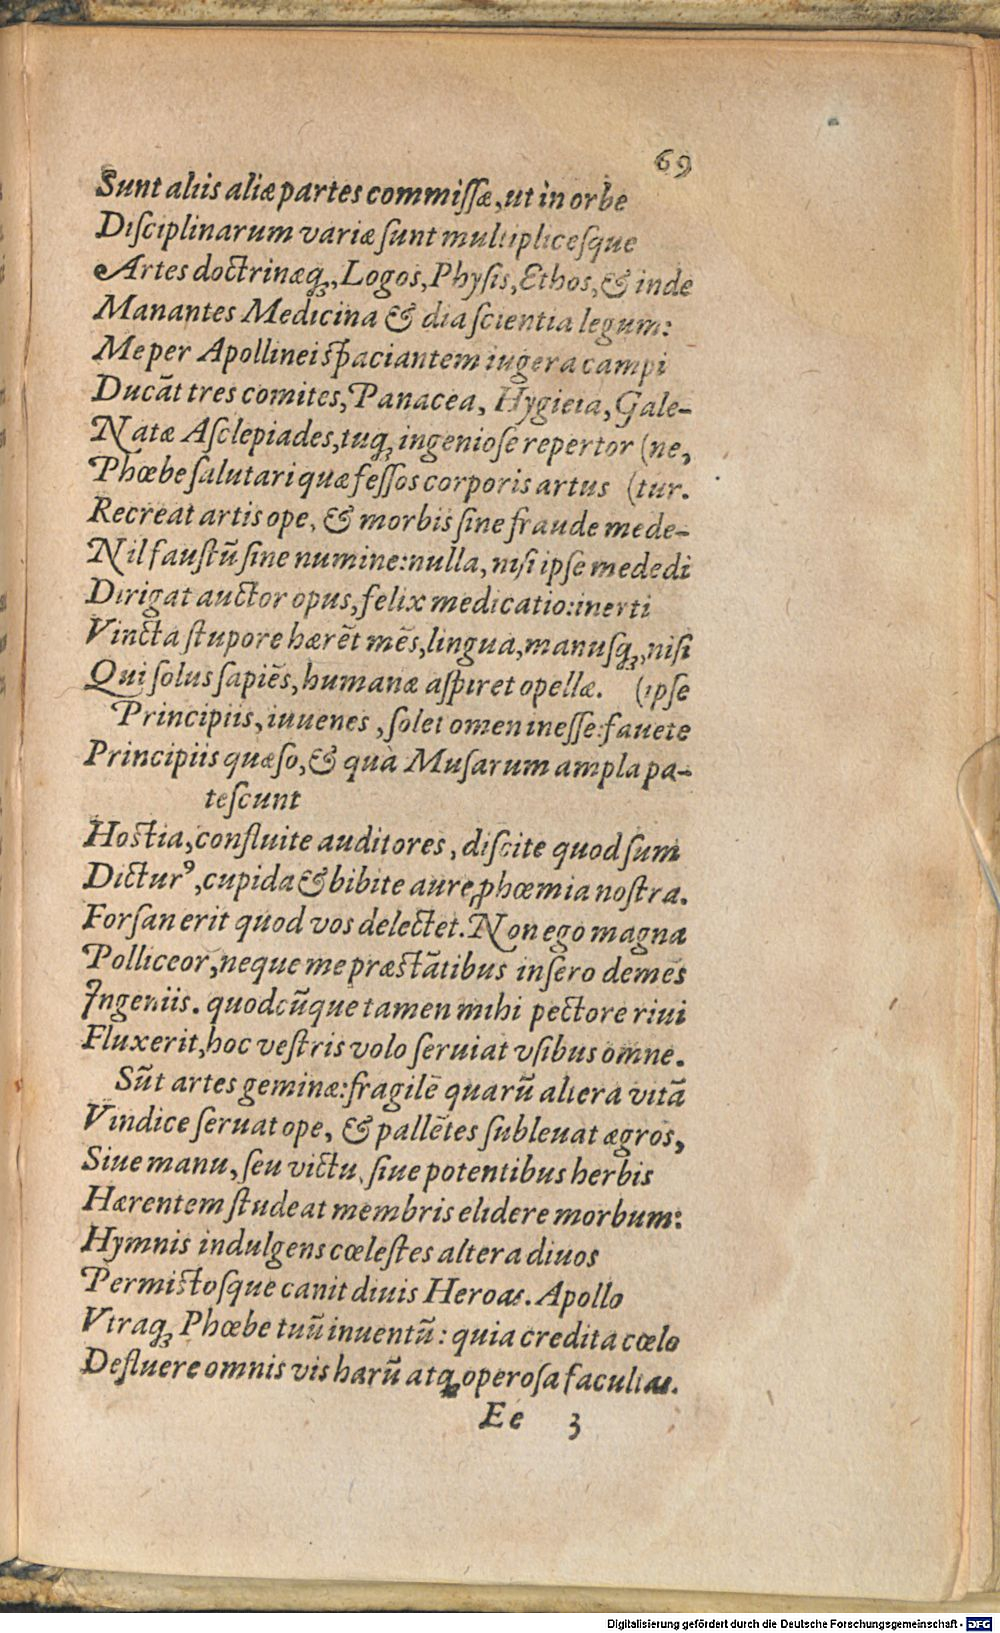 69
Sunt aliis aliæ partes commiſſæ, ut in orbe
Diſciplinarum variæ ſunt multipliceſque
Artes doctrinæq;, Logos, Phyſis, Ethos, & inde
Manantes Medicina & dia ſcientia legum:
Me per Apollinei spaciantem iugera campi
Ducãt tres comites, Panacea, Hygieia, Gale-
Natæ Aſclepiades, tuq; ingenioſe repertor (ne,
Phœbe ſalutari quæ feſſos corporis artus (tur.
Recreat artis ope, & morbis ſine fraude mede-
Nil fauſtũ ſine numine: nulla, niſi ipſe mededi
Dirigat auctor opus, felix medicatio: inerti
Vincta ſtupore hærẽt mẽs, lingua, manuſq;, niſi
Qui ſolus ſapiẽs, humanæ aſpiret opellæ. (ipſe
Principiis, iuuenes, ſolet omen ineſſe: fauete
Principiis quæſo, & quà Muſarum ampla pa-
teſcunt
Hoſtia, confluite auditores, diſcite quod ſum
Dicturꝰ, cupida & bibite aure ꝓhœmia noſtra.
Forſan erit quod vos delectet. Non ego magna
Polliceor, neque me præſtãtibus inſero demẽs
Ingeniis. quodcũque tamen mihi pectore riui
Fluxerit, hoc veſtris volo ſeruiat vſibus omne.
Sũt artes geminæ: fragilẽ quarũ altera vitã
Vindice ſeruat ope, & pallẽtes ſubleuat ægros,
Siue manu, ſeu victu, ſiue potentibus herbis
Hærentem ſtudeat membris elidere morbum:
Hymnis indulgens cœleſtes altera diuos
Permiſtoſque canit diuis Heroas. Apollo
Vtraq; Phœbe tuũ inuentũ: quia credita cœlo
Defluere omnis vis harũ atq; operoſa facultas.
Ee 3
Digitalisierung gefördert durch die Deutsche Forschungsgemeinschaft - DFG